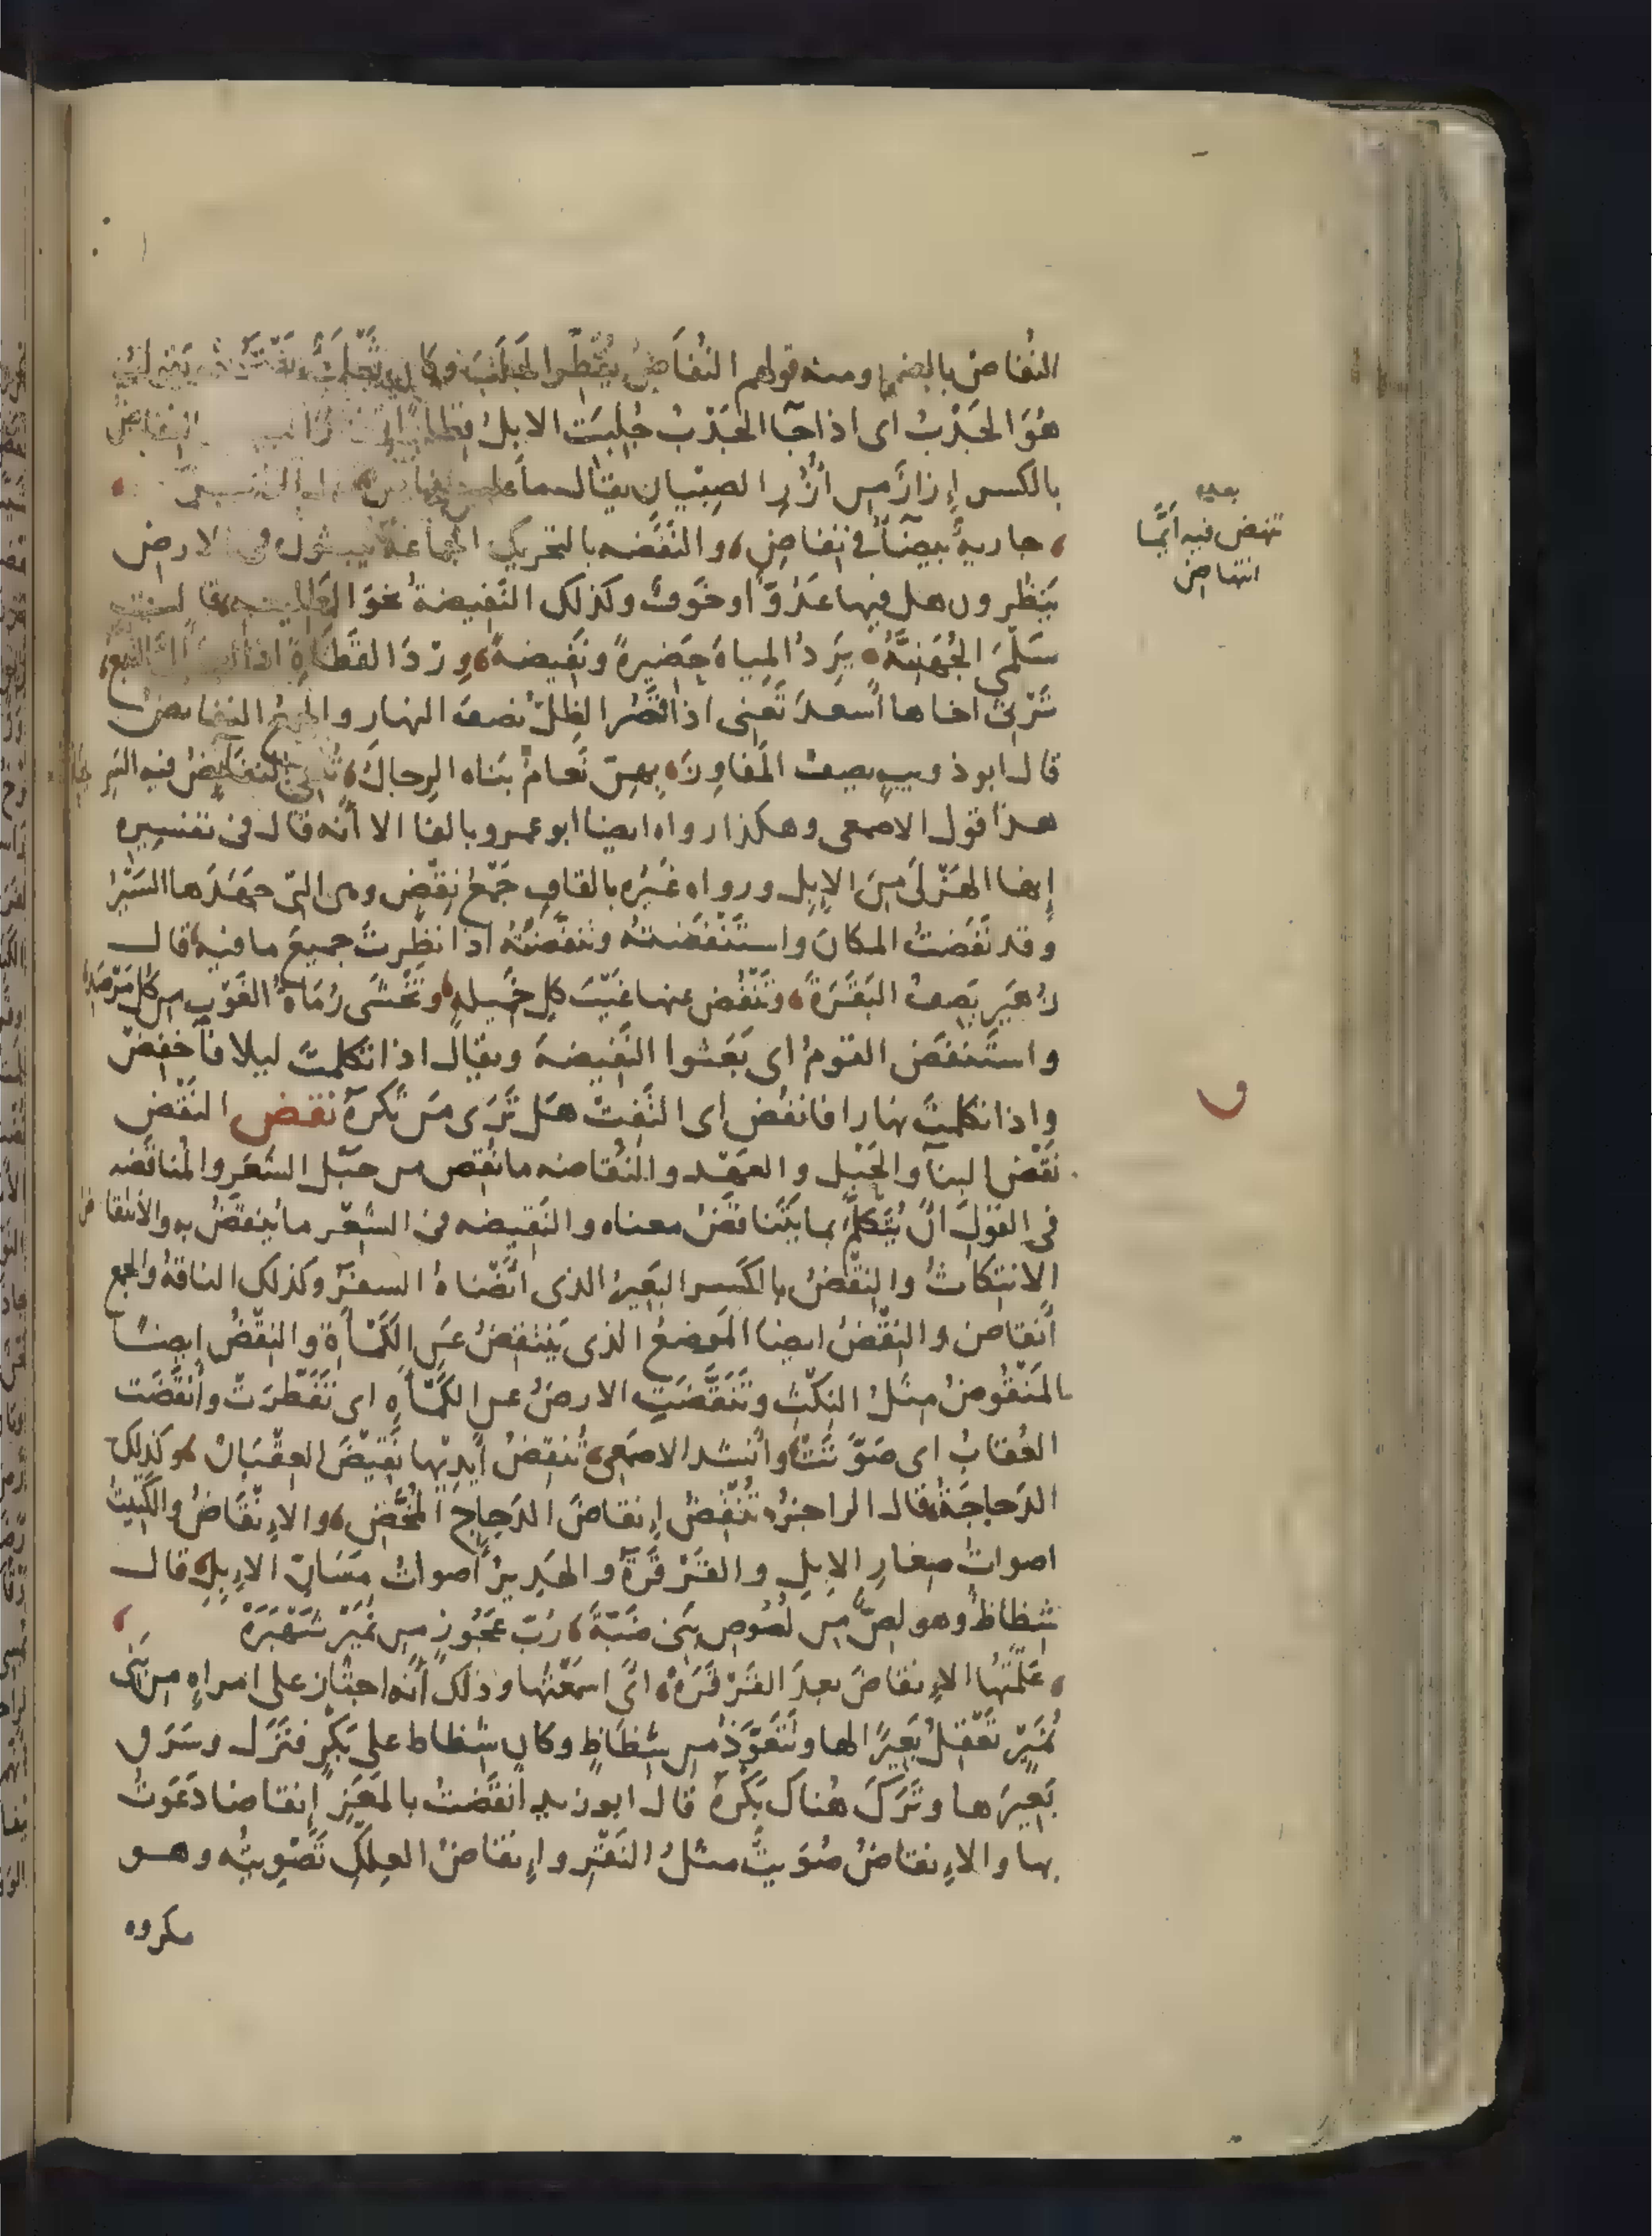 النُفاض بالضم ومنه قولهم النُفَاضُ يُقَطِّر الجَلَبَ وكان
هُوَ الجَدْبُ اى اذا جآ الجَدْبُ جُلِبَت الابلُ
بالكسر إِزارٌ مِن أُزُرِ الصِبْيانِ يقال ما عليه نفاض
جاريةٌ بيضآُ فى نِفاضِ والنَفَضه بالتحريك الجماعة يبعثون فى الارض
يَنظُرون هل فيها عَدُوٌّ او خَوفٌ وكذلك النَفِيضةُ نحوَ الطليعه قالت
سَلْمَى الجُهَنِيَّةُ يَرِدُ المِياهَ حَضِيرةً ونَفِيضةً وِرْدَ القَطاةِ اذا اسمأل التُبَّع
تَرْثى اخاها أَسعدَ تَعنى اذا قَصُر الظِلّ نصف النهار والجمع النفايض
قال ابو ذويب يصف المَفاوِزَ بِهِنّ نَعامٌ بَناه الرِجالُ تُلقى النفايضُ فيه السَرِيحا
هذا قول الاصمعى وهكذا رواه ايضا ابو عمرو بالفا الا أنّه قال فى تفسيره
إنها الهَزْلَى مِنَ الإبِل ورواه غَيْرُه بالقافِ جَمْعَ نِقْضٍ وهى التى جَهَدَها السَيْرُ
وقد نَفَضتُ المكانَ واستَنْفَضته وتَنَفَّضتُه اذا نظرتَ جميعَ ما فيه قال
زُهَير يَصِفُ البَقَرَةَ وتَنْفُض عنها غَيْبَ كلِ خَميلةٍ وتَخْشَى رُمَاةَ الغَوْثِ من كُلِّ مَرْصَدِ
واستَنفَضَ القومُ اى بَعَثوا النَفِيضةَ ويقال اذا تكلمتَ ليلا فآخفِضْ
واذا تكلمتَ نهارا فانفُض اى التَفِتْ هَل تَرَى مَن تَكرَهُ نقض النَقْض
نَقْضُ البِنآ والحَبْل والعَهْد والنُقاضه ما نُقِض من حَبْل الشَعَر والمُناقَضه
فى القَولِ أنْ يُتَكَلَّمَ بما يَتَناقَضُ معناه والنَقِيضه فى الشِعْر ما يُنقَضُ به والانتقاض
الانتِكاثُ والنِقْضُ بالكَسر البَعِيرُ الذى انْضَاهُ السفَرُ وكذلك الناقةُ والجمع
أَنقاض والنِقْضُ ايضا المَوضعُ الذى يَنتَقِضُ عَنِ الكَمْأَةِ والنِقْضُ ايضاً
المَنْقُوضُ مِثلُ النِكْثِ وتَنَقَّضَتِ الارضُ عن الكَمْأَةِ اى تَفَطَّرَتْ وأَنقَضَت
العُقابُ اى صَوَّتَتْ وأنشد الاصمَعى تُنقِضُ أَيديها نَقِيضَ العِقْبَانْ وكذلك
الدَجاجَةُ قال الراجزُ تُنْقِضُ إنقاضَ الدَجاجَ المُخَّضِ والإِنْقَاضُ والكَتِيتُ
اصواتُ صِغارِ الإبِلِ والقَرْقَرَةُ والهَدِيرُ أصواتُ مَسَانّ الإِبِلِ قال
شِظاظٌ وهو لصّ مِن لُصُوصِ بَنى ضَبَّةَ رُبّ عَجُوزٍ مِن نُمَيْر شَهْبَرَهْ
عَلّمْتُها الإِنقاضَ بعدَ القَرْقَرَهْ اىْ اسمَعْتُها وذلك أنّه اجتاز على امراةٍ من بَنى
نُمَيْر تَعْقِلُ بَعِيرًا لها وتَتَعَوَّذُ مِن شِظَاظٍ وكان شِظاظ على بَكْرٍ فنَزَل وسَرَق
بَعيرَها وتَرَكَ هُناكَ بَكْرَهُ قال ابو زيد أنقَضتُ بالمَعَزِ إنقاضا دَعَوتُ
بها والإِنقاضُ صُوَيتٌ مثلُ النَقْرِ وإِنقاضُ العِلْكِ تَصْوِيتُه وهو
مكروه
بعده
تنهض فيه أَيَّما
انتهاض